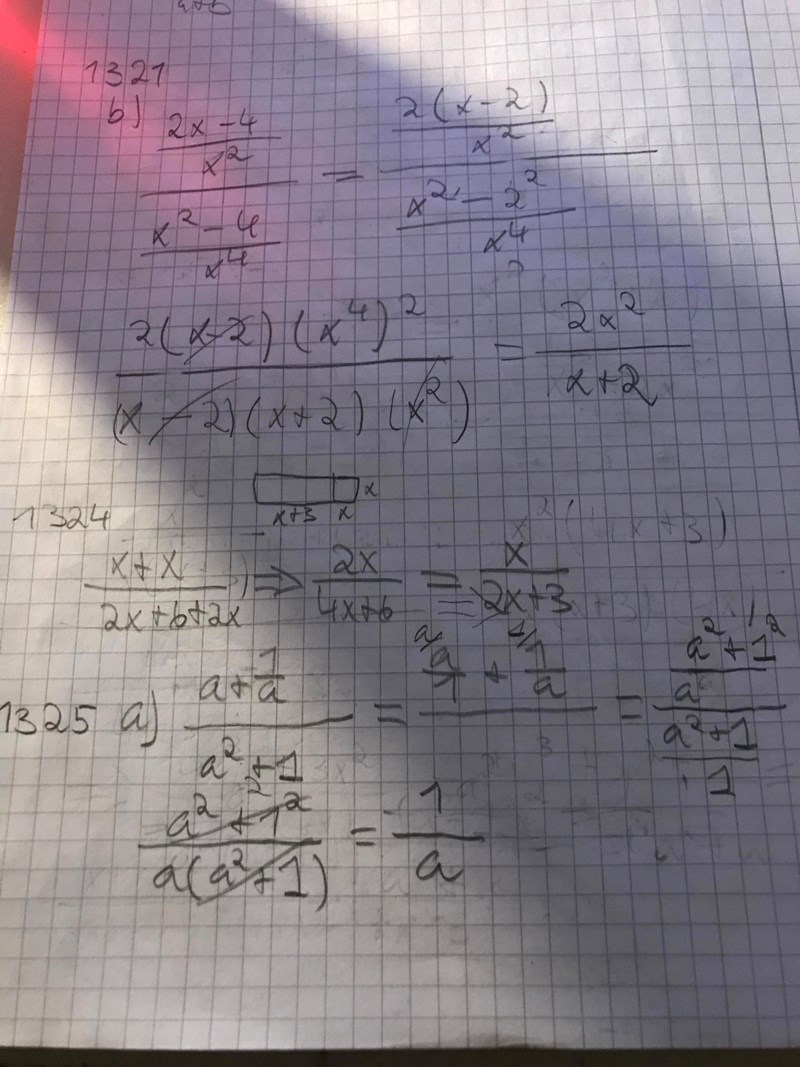 1321
b) \frac{\frac{2x-4}{x^2}}{\frac{x^2-4}{x^4}} = \frac{\frac{2(x-2)}{x^2}}{\frac{x^2-2^2}{x^4}}
\frac{2(x-2)(x^4)^2}{(x-2)(x+2)(x^2)} = \frac{2x^2}{x+2}
x
x+3 x
1324
\frac{x+x}{2x+6+2x} ⇒ \frac{2x}{4x+6} = \frac{x}{2x+3}
1325 a) \frac{a+\frac{1}{a}}{a^2+1} = \frac{\frac{a}{1}+\frac{1}{a}}{} = \frac{\frac{a^2+1^2}{a}}{\frac{a^2+1}{1}}
\frac{a^2+1^2}{a(a^2+1)} = \frac{1}{a}